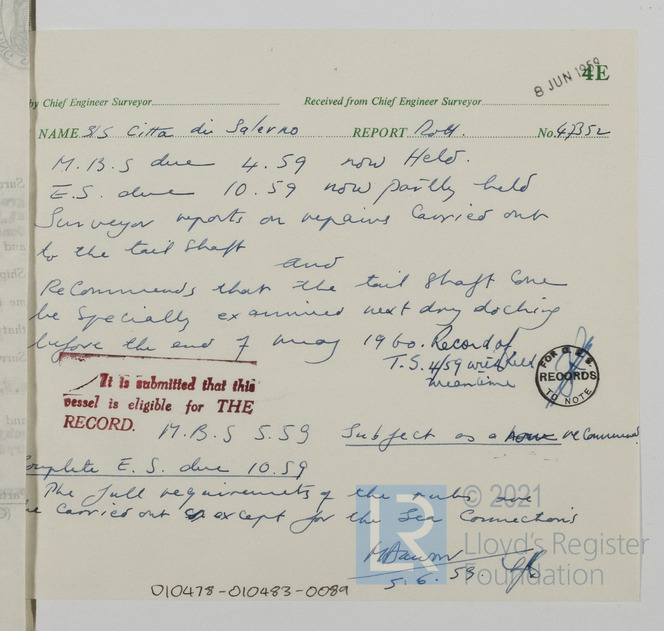 8 JUN 1959
4E
by Chief Engineer Surveyor
Received from Chief Engineer Surveyor
NAME S/S Citta di Salerno REPORT Rott. No. 47352
M.B.S due 4.59 now Held.
E.S. due 10.59 now partly held
Surveyor reports on repairs carried out
to the tail shaft
and
Recommends that the tail shaft cone
be specially examined next dry docking
before the end of may 1960. Record of
T.S. 4/59 withheld
meantime
FOR
RECORDS
TO NOTE
It is submitted that this
vessel is eligible for THE
RECORD.
M.B.S 5.59 Subject as a recommend
Complete E.S. due 10.59
The full requirements of the rules are
carried out except for the Sea Connections
5.6.59.
010478-010483-0089
LR
© 2021
Lloyd's Register
Foundation